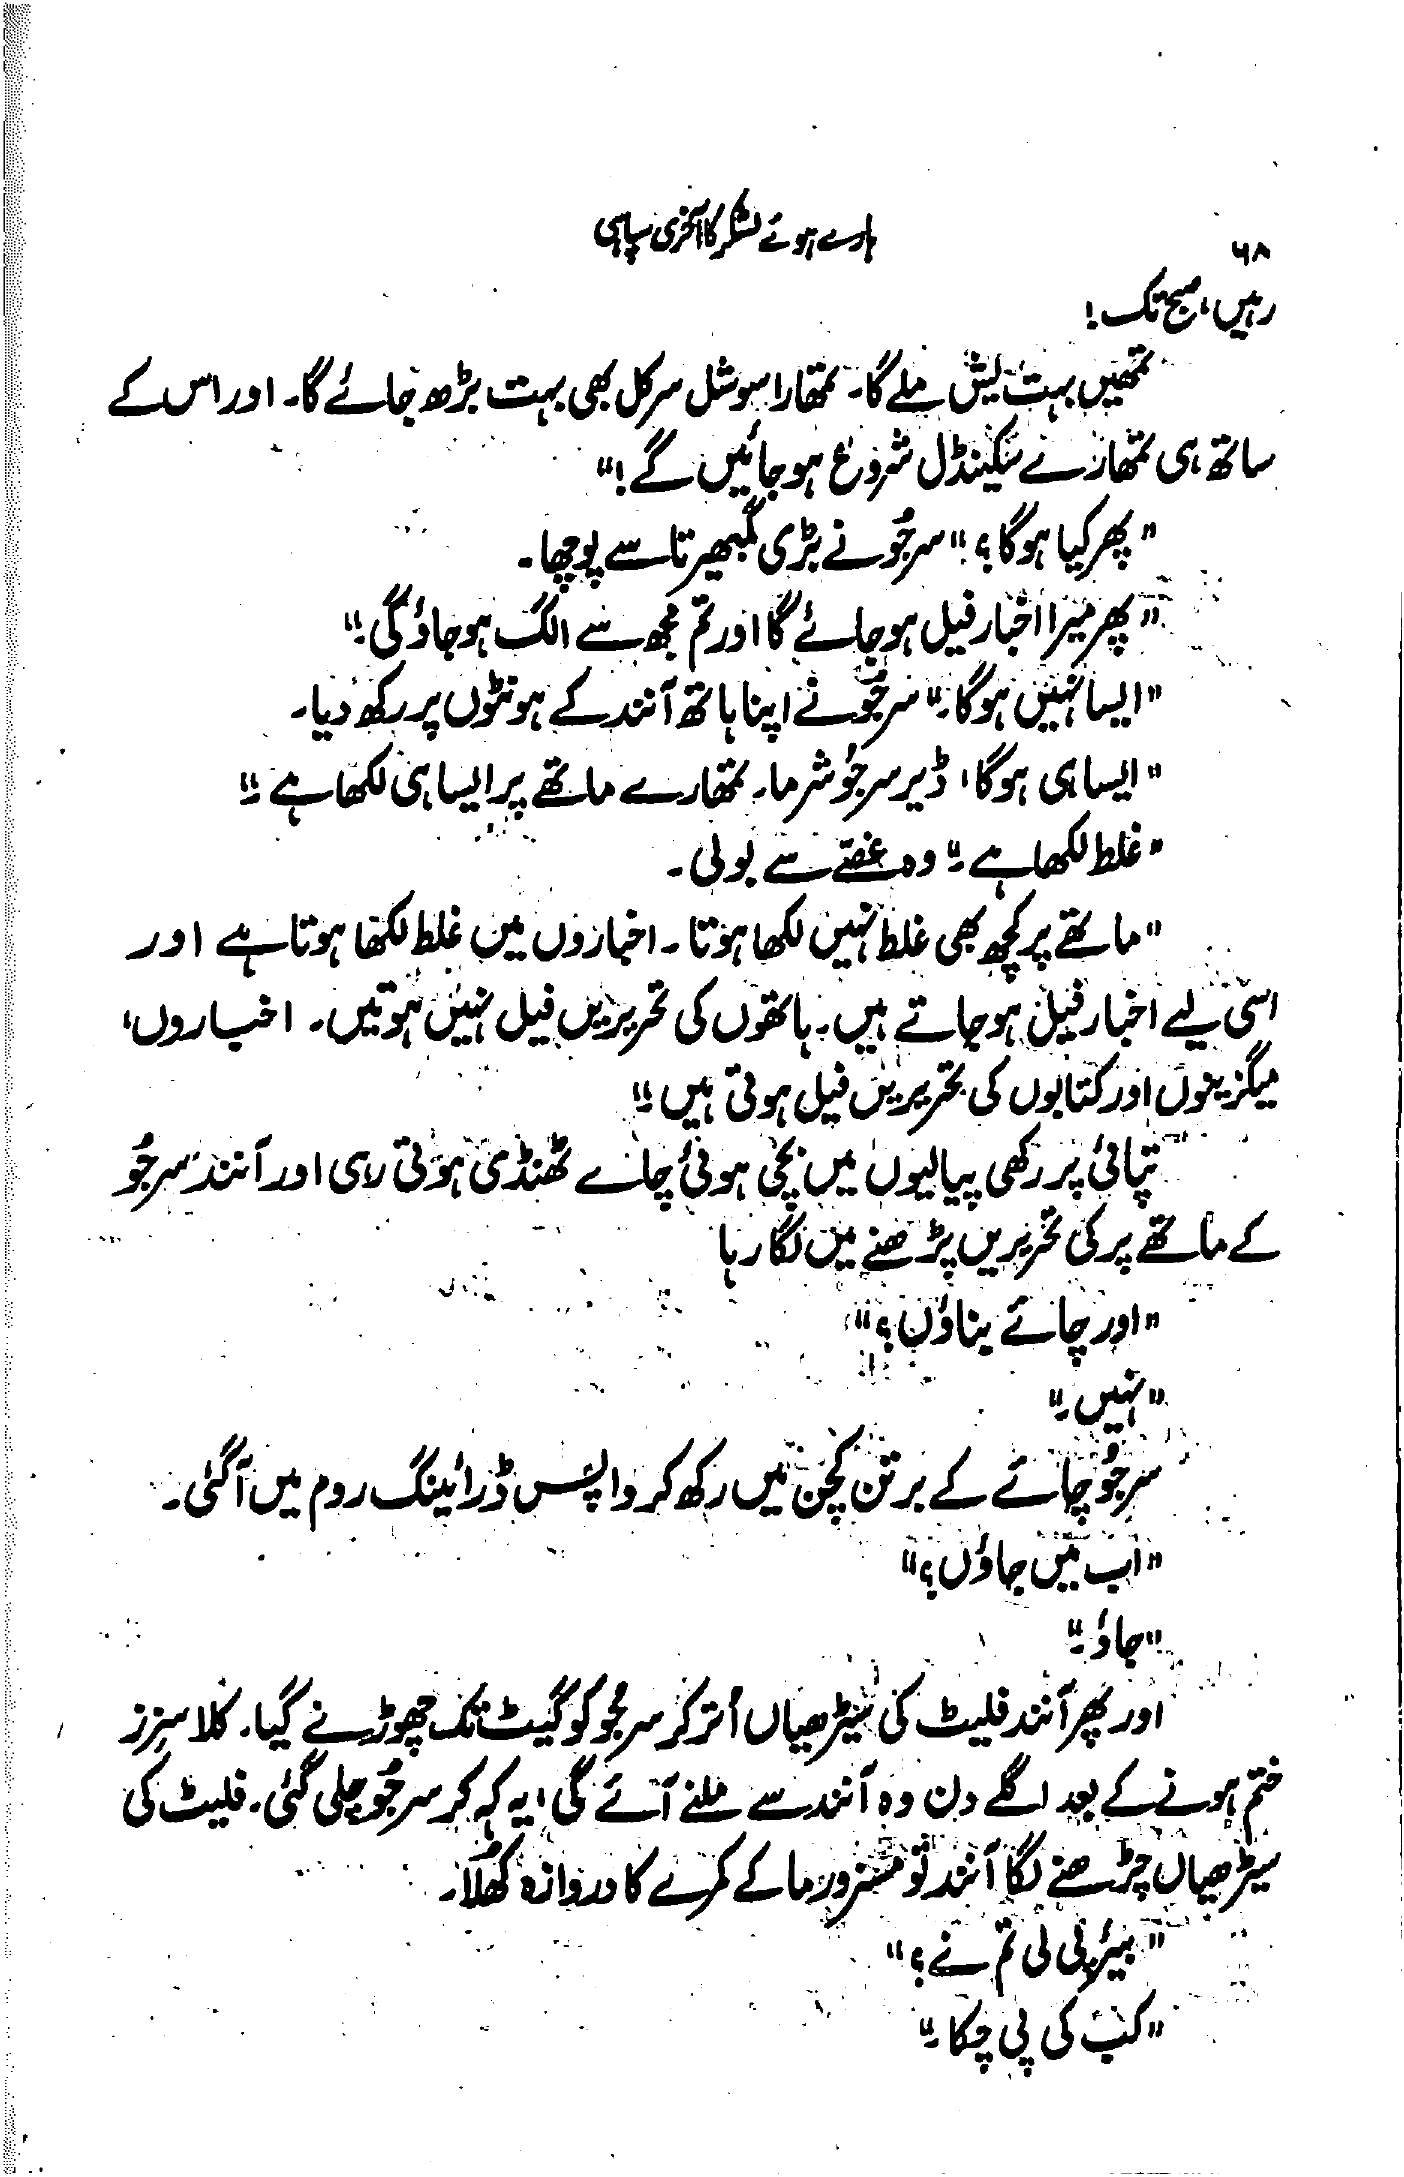 ۶۸
ہارے ہوئے لشکر کا آخری سپاہی
رہیں، صبح تک!
تمھیں بہت لیش ملے گا۔ تمھارا سوشل سرکل بھی بہت بڑھ جائے گا۔ اور اس کے
ساتھ ہی تمھارے سکینڈل شروع ہوجائیں گے!"
"پھر کیا ہوگا؟" سرجُو نے بڑی گمبھیرتا سے پوچھا۔
"پھر میرا اخبار فیل ہوجائے گا اور تم مجھ سے الگ ہوجاؤ گی۔"
"ایسا نہیں ہوگا۔" سرجُو نے اپنا ہاتھ آنند کے ہونٹوں پر رکھ دیا۔
"ایسا ہی ہوگا، ڈیر سرجُو شرما۔ تمھارے ماتھے پر ایسا ہی لکھا ہے۔"
"غلط لکھا ہے۔" وہ غصّے سے بولی۔
"ماتھے پر کچھ بھی غلط نہیں لکھا ہوتا۔ اخباروں میں غلط لکھا ہوتا ہے اور
اسی لیے اخبار فیل ہوجاتے ہیں۔ ہاتھوں کی تحریریں فیل نہیں ہوتیں۔ اخباروں،
میگزینوں اور کتابوں کی تحریریں فیل ہوتی ہیں۔"
تپائی پر رکھی پیالیوں میں بچی ہوئی چائے ٹھنڈی ہوتی رہی اور آنند سرجُو
کے ماتھے پر کی تحریریں پڑھنے میں لگا رہا
"اور چائے بناؤں؟"
"نہیں۔"
سرجُو چائے کے برتن کچن میں رکھ کر واپس ڈرائینگ روم میں آگئی۔
"اب میں جاؤں؟"
"جاؤ۔"
اور پھر آنند فلیٹ کی سیڑھیاں اُتر کر سرجُو کو گیٹ تک چھوڑنے گیا۔ کلاسزز
ختم ہونے کے بعد اگلے دن وہ آنند سے ملنے آئے گی، یہ کہہ کر سرجُو چلی گئی۔ فلیٹ کی
سیڑھیاں چڑھنے لگا آنند تو مسز ورما کے کمرے کا دروازہ کھُلا۔
"بیئر پی لی تم نے؟"
"کب کی پی چکا۔"